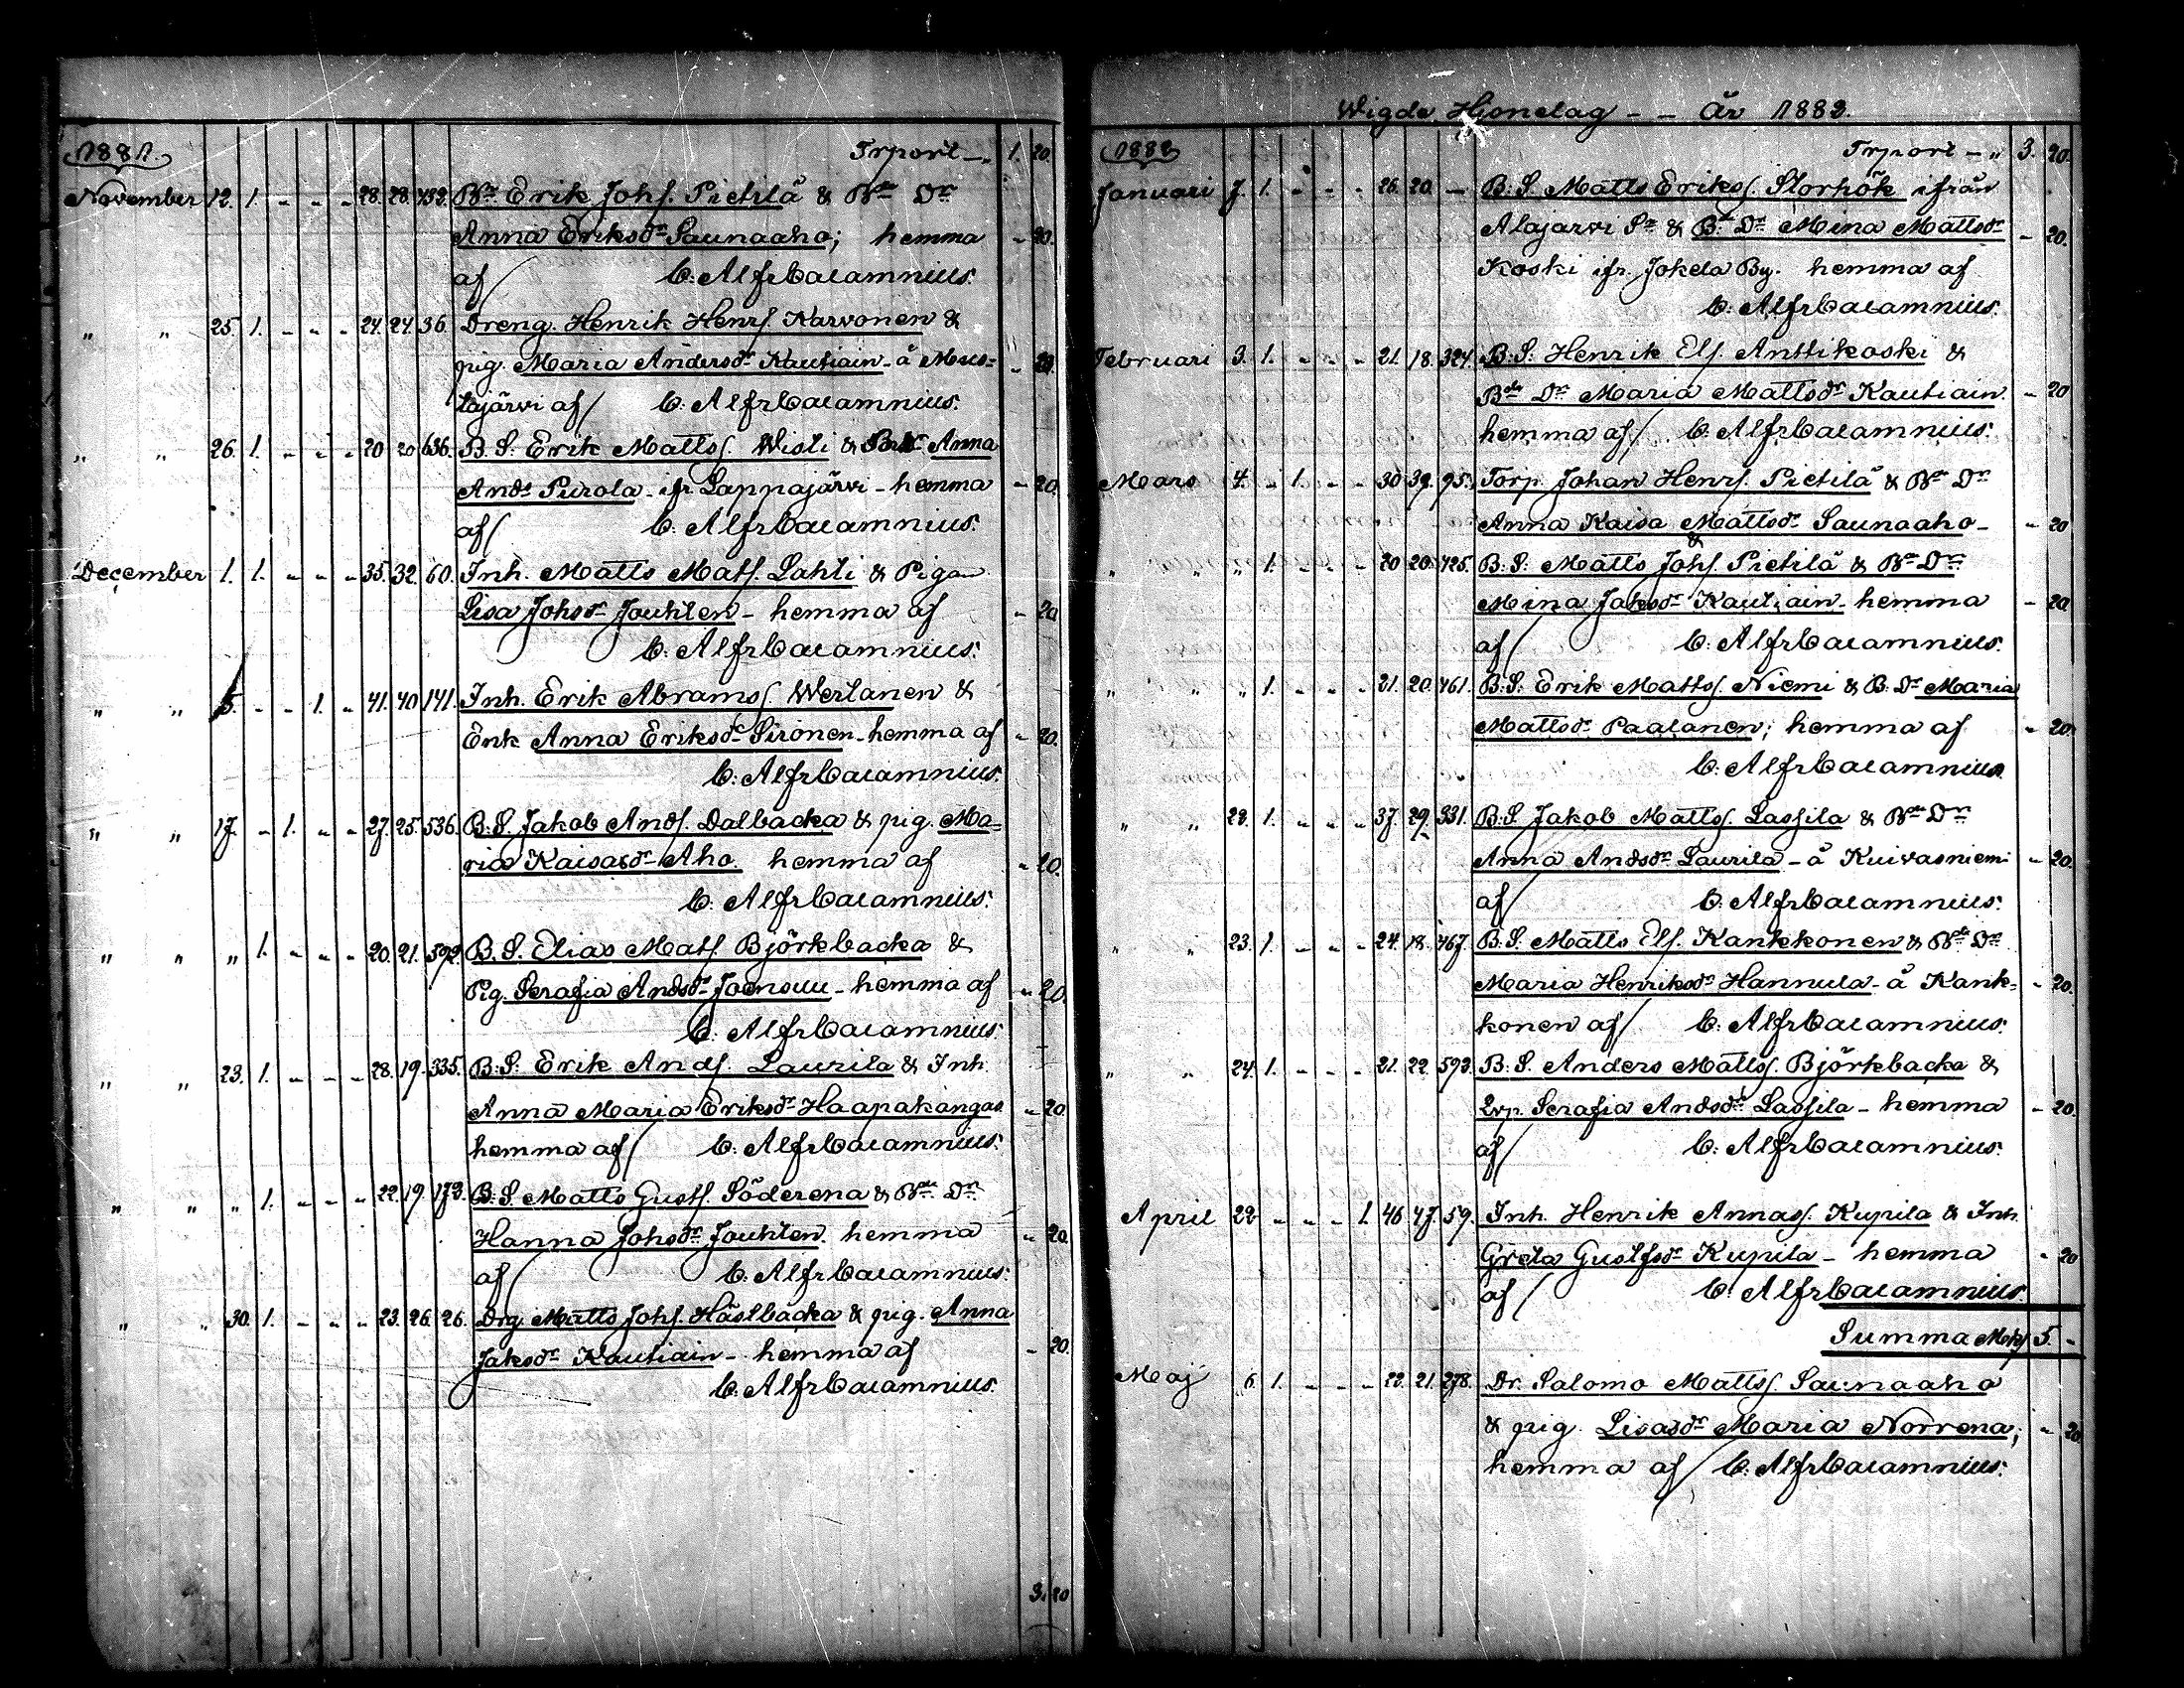 1881. Trport - „ 1. 20.
November 12. 1. „ „ „ 28. 28. 432. Bde Erik Johs. Pietilä & Bde Dr
Anna Eriksdr Saunaaho; hemma „ 20.
af/ C. AlfrCalamnius.
„ „ 25. 1. „ „ „ 24. 24. 36. Dreng. Henrik Henrs. Karvonen &
pig. Maria Andersdr Kautiain - å Mus= „ 20.
tajärvi af/ C. AlfrCalamnius.
„ „ 26. 1. „ „ „ 20 20 636. B. S. Erik Matts. Wisti & Anna
Ands Purola - ifr Lappajärvi - hemma „ 20.
af/ C. AlfrCalamnius.
December 1. 1. „ „ „ 35. 32. 60. Inh. Matts Mats. Lahti & Pigan
Lisa Johsdr Jouhten - hemma af „ 20
C. AlfrCalamnius.
„ „ 5. „ „ 1. „ 41. 40 141. Inh. Erik Abrams. Wertanen &
Enk Anna Eriksdr Sironen - hemma af „ 20.
C. AlfrCalamnius.
„ „ 17. „ 1. „ „ 27. 25. 536. B. S. Jakob Ands. Dalbacka & pig. Ma=
ria Kaisasdr Aho. hemma af „ 20.
C. AlfrCalamnius.
„ „ „ 1. „ „ „ 20. 21. 592. B. S. Elias Mats. Björkbacka &
Pig. Serafia Andsdr Joensuu - hemma af „ 20.
C. AlfrCalamnius.
„ „ 23. 1. „ „ „ 28. 19. 335. B. S. Erik Ands. Laurila & Inh.
Anna Maria Eriksdr Haapakangas „ 20
hemma af/ C. AlfrCalamnius.
„ „ „ 1. „ „ „ 22. 19. 173. B. S. Matts Gusts. Söderena & Bde Dr
Hanna Johsdr Jouhten. hemma „ 20.
af/ C. AlfrCalamnius.
„ „ 30. 1. „ „ „ 23. 26. 26. Drg. Matts Johs. Hästbacka & pig. Anna
Jaksdr Kautiain - hemma af „ 20.
C. AlfrCalamnius.
3. 20
Wigde Hjonelag - - År 1882.
1882 Trport - „ 3. 20.
Januari 7. 1. „ „ „ 26. 20. - B. S. Matts Eriks. Storhök ifrån
Alajarvi Sn & B. Dr Mina Mattsdr „ 20.
Koski ifr. Jokela By. hemma af
C. AlfrCalamnius.
Februari 3. 1. „ „ „ 21. 18. 324. B. S. Henrik Els. Anttikoski &
Bde Dr Maria Mattsdr Kautiain. „ 20
hemma af/ C. AlfrCalamnius.
Mars 4. „ 1. „ „ 30 39. 95. Torp. Johan Henrs. Pietilä & Bde Dr
Anna Kaisa Mattsdr Saunaaho - „ 20
&
„ „ „ 1. „ „ „ 20 20. 425. B. S. Matts Johs. Pietilä & Bde Dr
Mina Jaksdr Kautiain - hemma „ 20.
af/ C. AlfrCalamnius.
„ „ „ 1. „ „ „ 21. 20. 461. B. S. Erik Matts. Niemi & B. Dr Maria
Mattsdr Paalanen; hemma af „ 20.
C. AlfrCalamnius
„ „ 22. 1. „ „ „ 37. 29. 331. B. S. Jakob Matts. Lassila & Bde Dr
Anna Andsdr Laurila - å Kuivasniemi „ 20.
af/ C. AlfrCalamnius.
„ „ 23. 1. „ „ „ 24. 18. 467. B. S. Matts Els. Kankkonen & Bde Dr
Maria Henriksdr Hannula - å Kank= „ 20.
konen af/ C. AlfrCalamnius.
„ „ 24. 1. „ „ „ 21. 22 593. B. S. Anders Matts. Björkbacka &
Serafia Andsdr Lassila - hemma „ 20.
af/ C. AlfrCalamnius.
April 22 „ „ „ 1. 46 47. 59. Inh. Henrik Annas. Kupila & Inh.
Greta Gustfsdr Kupila - hemma „ 20
af/ C. AlfrCalamnius.
Summa Mk 5. -
Maj 6. 1. „ „ „ 22. 21. 278. Dr. Salomo Matts. Saunaaho
& pig. Lisasdr Maria Norrena; „ 20.
hemma af/ C. AlfrCalamnius.